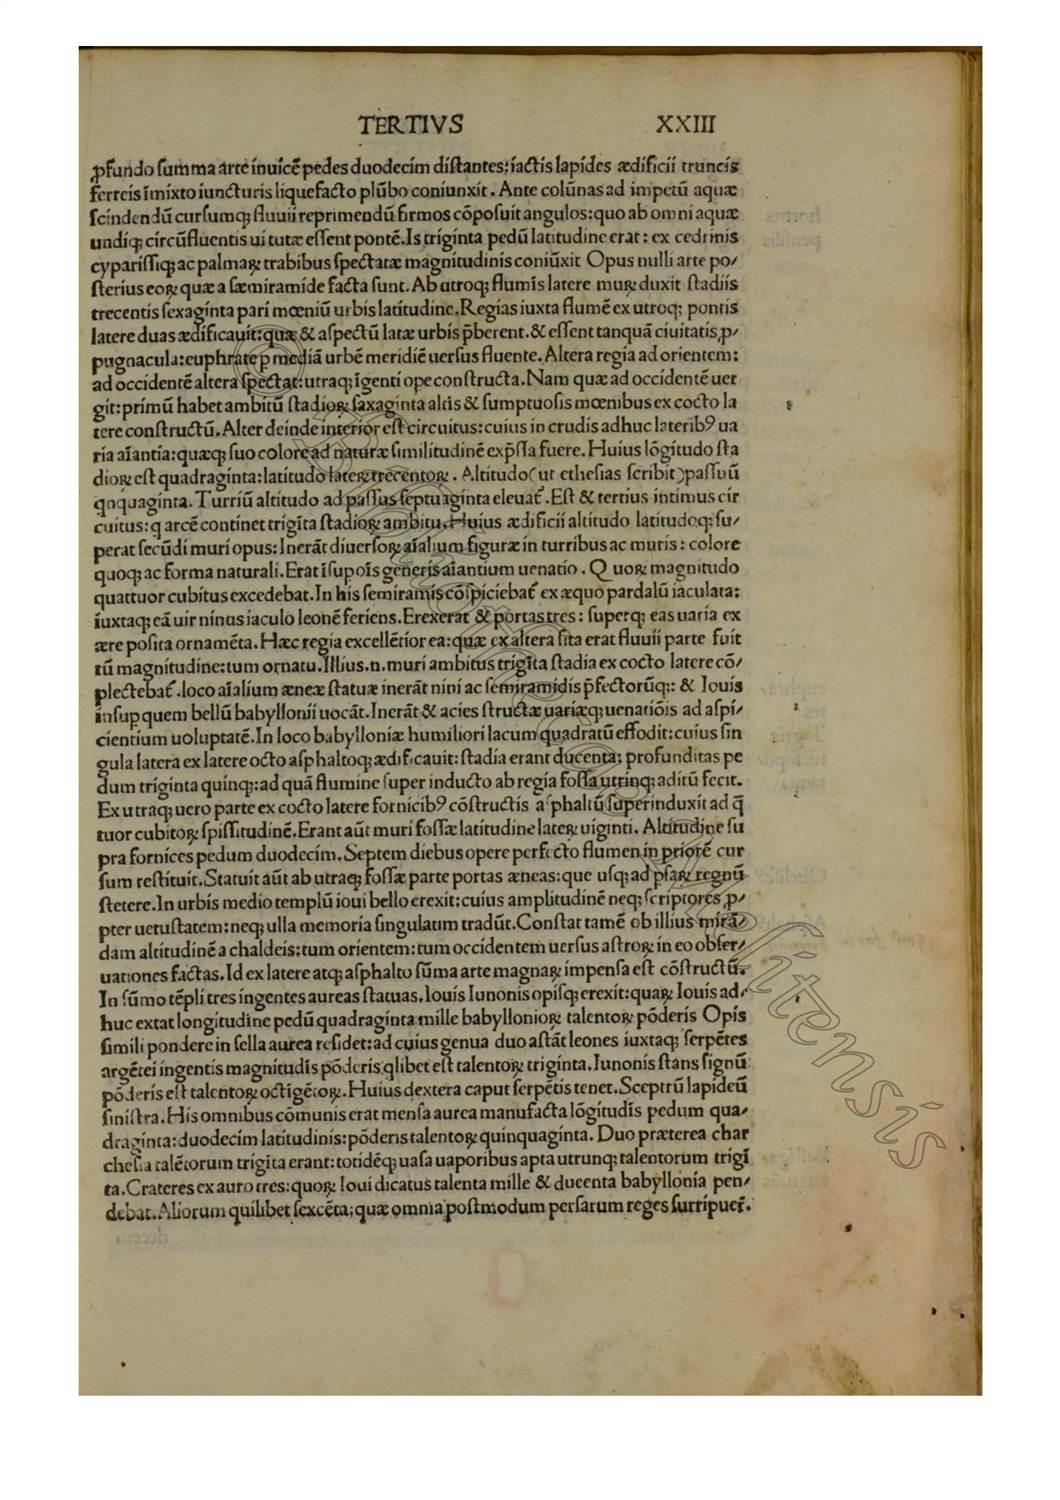 TERTIVS XXIII
ꝓfundo ſumma arte inuicē pedes duodecim diſtantes: iactis lapides ædificii truncis
ferreis īmixto iuncturis liquefacto plūbo coniunxit. Ante colūnas ad impetū aquæ
ſcindendū curſumq; fluuii reprimendū firmos cōpoſuit angulos: quo ab omni aquæ
undiq; circūfluentis ui tutæ eſſent pontē. Is triginta pedū latitudine erat: ex cedrinis
cypariſſiq; ac palmaꝝ trabibus ſpectatæ magnitudinis coniūxit Opus nulli arte po/
ſterius eoꝝ quæ a ſæmiramide facta ſunt. Ab utroq; flumīs latere muꝝ duxit ſtadiis
trecentis ſexaginta pari mœniū urbis latitudine. Regias iuxta flumē ex utroq; pontis
latere duas ædificauit: quæ & aſpectū latæ urbis p̄berent. & eſſent tanquā ciuitatis ꝓ/
pugnacula: euphrate ꝑ mediā urbē meridiē uerſus fluente. Altera regia ad orientem:
ad occidentē altera ſpectat: utraq; īgenti ope conſtructa. Nam quæ ad occidentē uer
git: primū habet ambitū ſtadioꝝ ſaxaginta altis & ſumptuoſis mœnibus ex cocto la
tere conſtructū. Alter deinde interior eſt circuitus: cuius in crudis adhuc lateribꝰ ua
ria aīantia: quæq; ſuo colore ad naturæ ſimilitudinē exp̄ſſa fuere. Huius lōgitudo ſta
dioꝝ eſt quadraginta: latitudo lateꝝ trecentoꝝ. Altitudo (ut etheſias ſcribit) paſſuū
qnquaginta. Turriū altitudo ad paſſus ſeptuaginta eleuat̄. Eſt & tertius intimus cir
cuitus: q arcē continet trigīta ſtadioꝝ ambitu. Huius ædificii altitudo latitudoq; ſu/
perat ſecūdi muri opus: Inerāt diuerſoꝝ aīalium figuræ in turribus ac muris: colore
quoq; ac forma naturali. Erat īſup oīs generis aīantium uenatio. Quoꝝ magnitudo
quattuor cubitus excedebat. In his ſemiramis cōſpiciebat̄ ex æquo pardalū iaculata:
iuxtaq; eā uir ninus iaculo leonē feriens. Erexerat & portas tres: ſuperq; eas uaria ex
ære poſita ornamēta. Hæc regia excellētior ea: quæ ex altera ſita erat fluuii parte fuit
tū magnitudine: tum ornatu. Illius .n. muri ambitus trigīta ſtadia ex cocto latere cō/
plectebat̄. loco aīalium æneæ ſtatuæ inerāt nini ac ſemiramidis p̄fectorūq;: & Iouis
inſup quem bellū babyllonii uocāt. Inerāt & acies ſtructæ uariæq; uenatiōis ad aſpi/
cientium uoluptatē. In loco babylloniæ humiliori lacum quadratū effodit: cuius ſin
gula latera ex latere octo aſphaltoq; ædificauit: ſtadia erant ducenta; profunditas pe
dum triginta quinq;: ad quā flumine ſuper inducto ab regia foſſa utrinq; aditū fecit.
Ex utraq; uero parte ex cocto latere fornicibꝰ cōſtructis aſphaltū ſuperinduxit ad q̄
tuor cubitoꝝ ſpiſſitudinē. Erant aūt muri foſſæ latitudine lateꝝ uiginti. Altitudine ſu
pra fornices pedum duodecim. Septem diebus opere perfecto flumen in priorē cur
ſum reſtituit. Statuit aūt ab utraq; foſſæ parte portas æneas: que uſq; ad ꝑſaꝝ regnū
ſtetere. In urbis medio templū ioui bello erexit: cuius amplitudinē neq; ſcriptores ꝓ/
pter uetuſtatem: neq; ulla memoria ſingulatim tradūt. Conſtat tamē ob illius mirā/
dam altitudinē a chaldeis: tum orientem: tum occidentem uerſus aſtroꝝ in eo obſer/
uationes factas. Id ex latere atq; aſphalto ſūma arte magnaꝝ impenſa eſt cōſtructū.
In ſūmo tēpli tres ingentes aureas ſtatuas. Iouis Iunonis opiſq; erexit: quaꝝ Iouis ad/
huc extat longitudine pedū quadraginta mille babyllonioꝝ talentoꝝ pōderis Opis
ſimili pondere in ſella aurea reſidet: ad cuius genua duo aſtāt leones iuxtaq; ſerpētes
argētei ingentis magnitudīs pōderis qlibet eſt talentoꝝ triginta. Iunonis ſtans ſignū
pōderis eſt talentoꝝ octigētoꝝ. Huius dextera caput ſerpētis tenet. Sceptrū lapideū
ſiniſtra. His omnibus cōmunis erat menſa aurea manufacta lōgitudīs pedum qua/
draginta: duodecim latitudinis: pōderis talentoꝝ quinquaginta. Duo præterea char
cheſia talētorum trigīta erant: totidēq; uaſa uaporibus apta utrunq; talentorum trigī
ta. Crateres ex auro tres: quoꝝ Ioui dicatus talenta mille & ducenta babyllonia pen/
debat. Aliorum quilibet ſexcēta; quæ omnia poſtmodum perſarum reges ſurripuer̄.